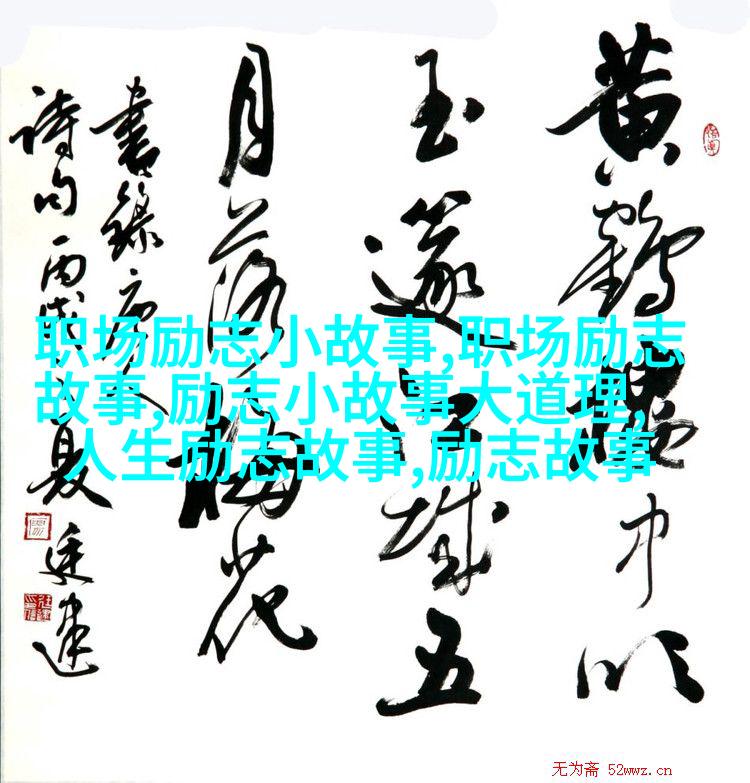 黄鶴樓中吹
玉篴江城五
月落梅花
書錄人
詩句丙戌夏廷建
职场励志小故事,职场励志
故事,励志小故事大道理,
人生励志故事,励志故事
无为斋 52wwz.cn